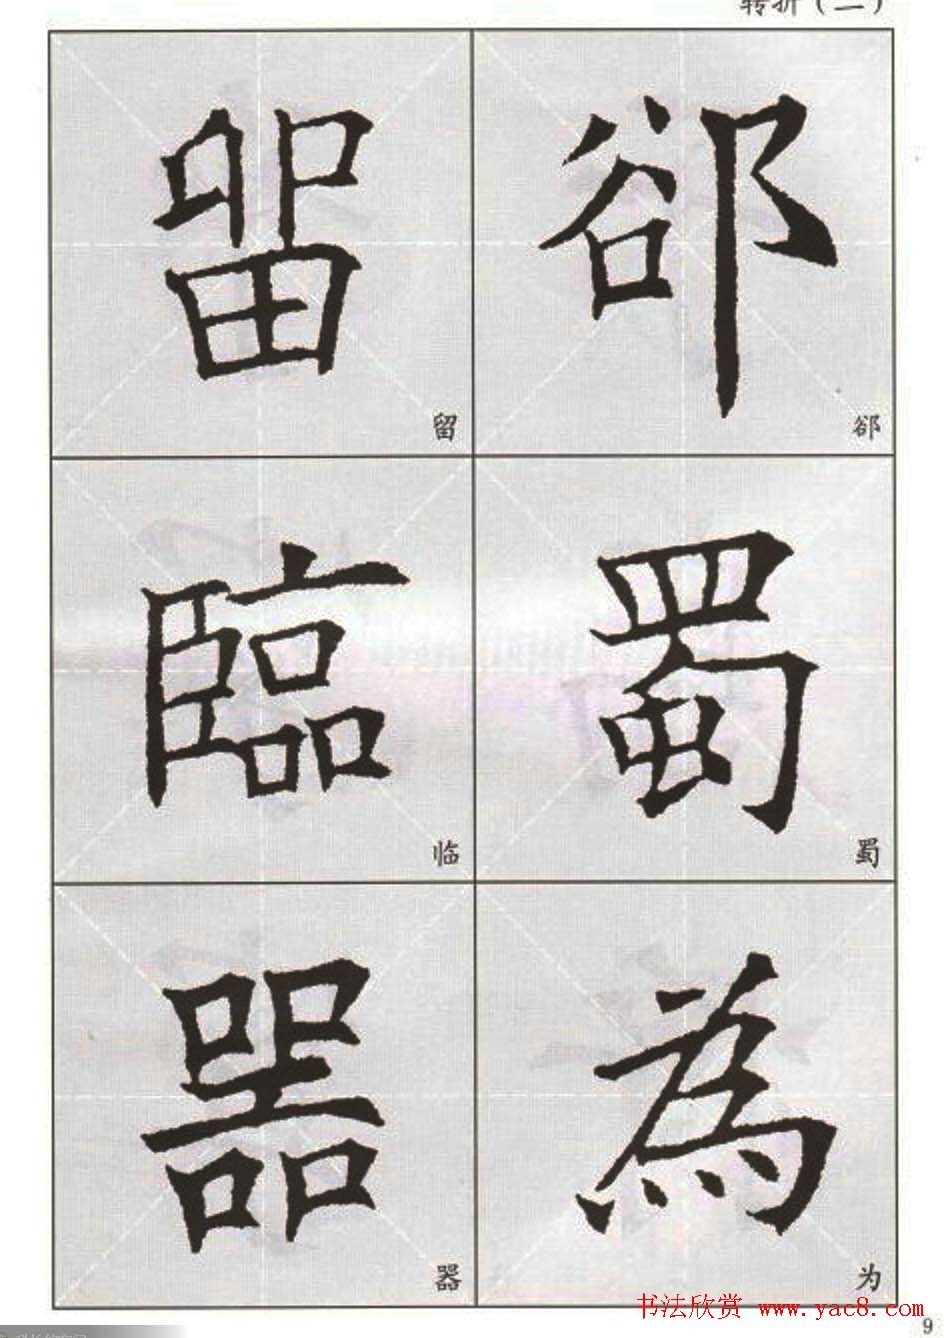 转折（二）
留 郤
留 郤
臨 蜀
临 蜀
噐 為
器 为
书法欣赏 www.yac8.com
9